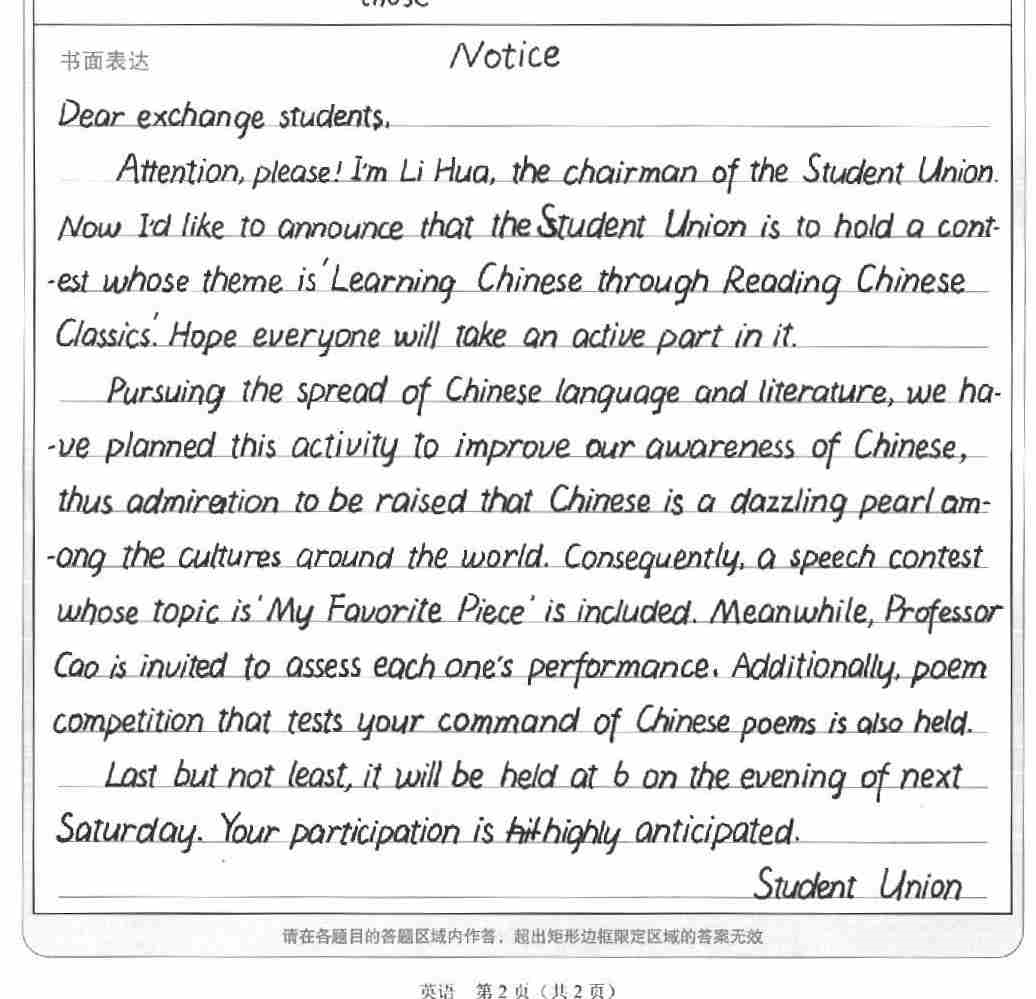 those
书面表达
Notice
Dear exchange students,
Attention, please! I'm Li Hua, the chairman of the Student Union.
Now I'd like to announce that the Student Union is to hold a cont-
-est whose theme is 'Learning Chinese through Reading Chinese
Classics'. Hope everyone will take an active part in it.
Pursuing the spread of Chinese language and literature, we ha-
-ve planned this activity to improve our awareness of Chinese,
thus admiration to be raised that Chinese is a dazzling pearl am-
-ong the cultures around the world. Consequently, a speech contest
whose topic is 'My Favorite Piece' is included. Meanwhile, Professor
Cao is invited to assess each one's performance. Additionally, poem
competition that tests your command of Chinese poems is also held.
Last but not least, it will be held at 6 on the evening of next
Saturday. Your participation is highly anticipated.
Student Union
请在各题目的答题区域内作答，超出矩形边框限定区域的答案无效
英语 第2页（共2页）